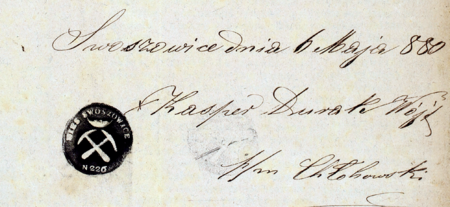 Swoszowice dnia 6 Maja 880
Kasper Durak Wójt
WIEŚ SWOSZOWICE
N 226